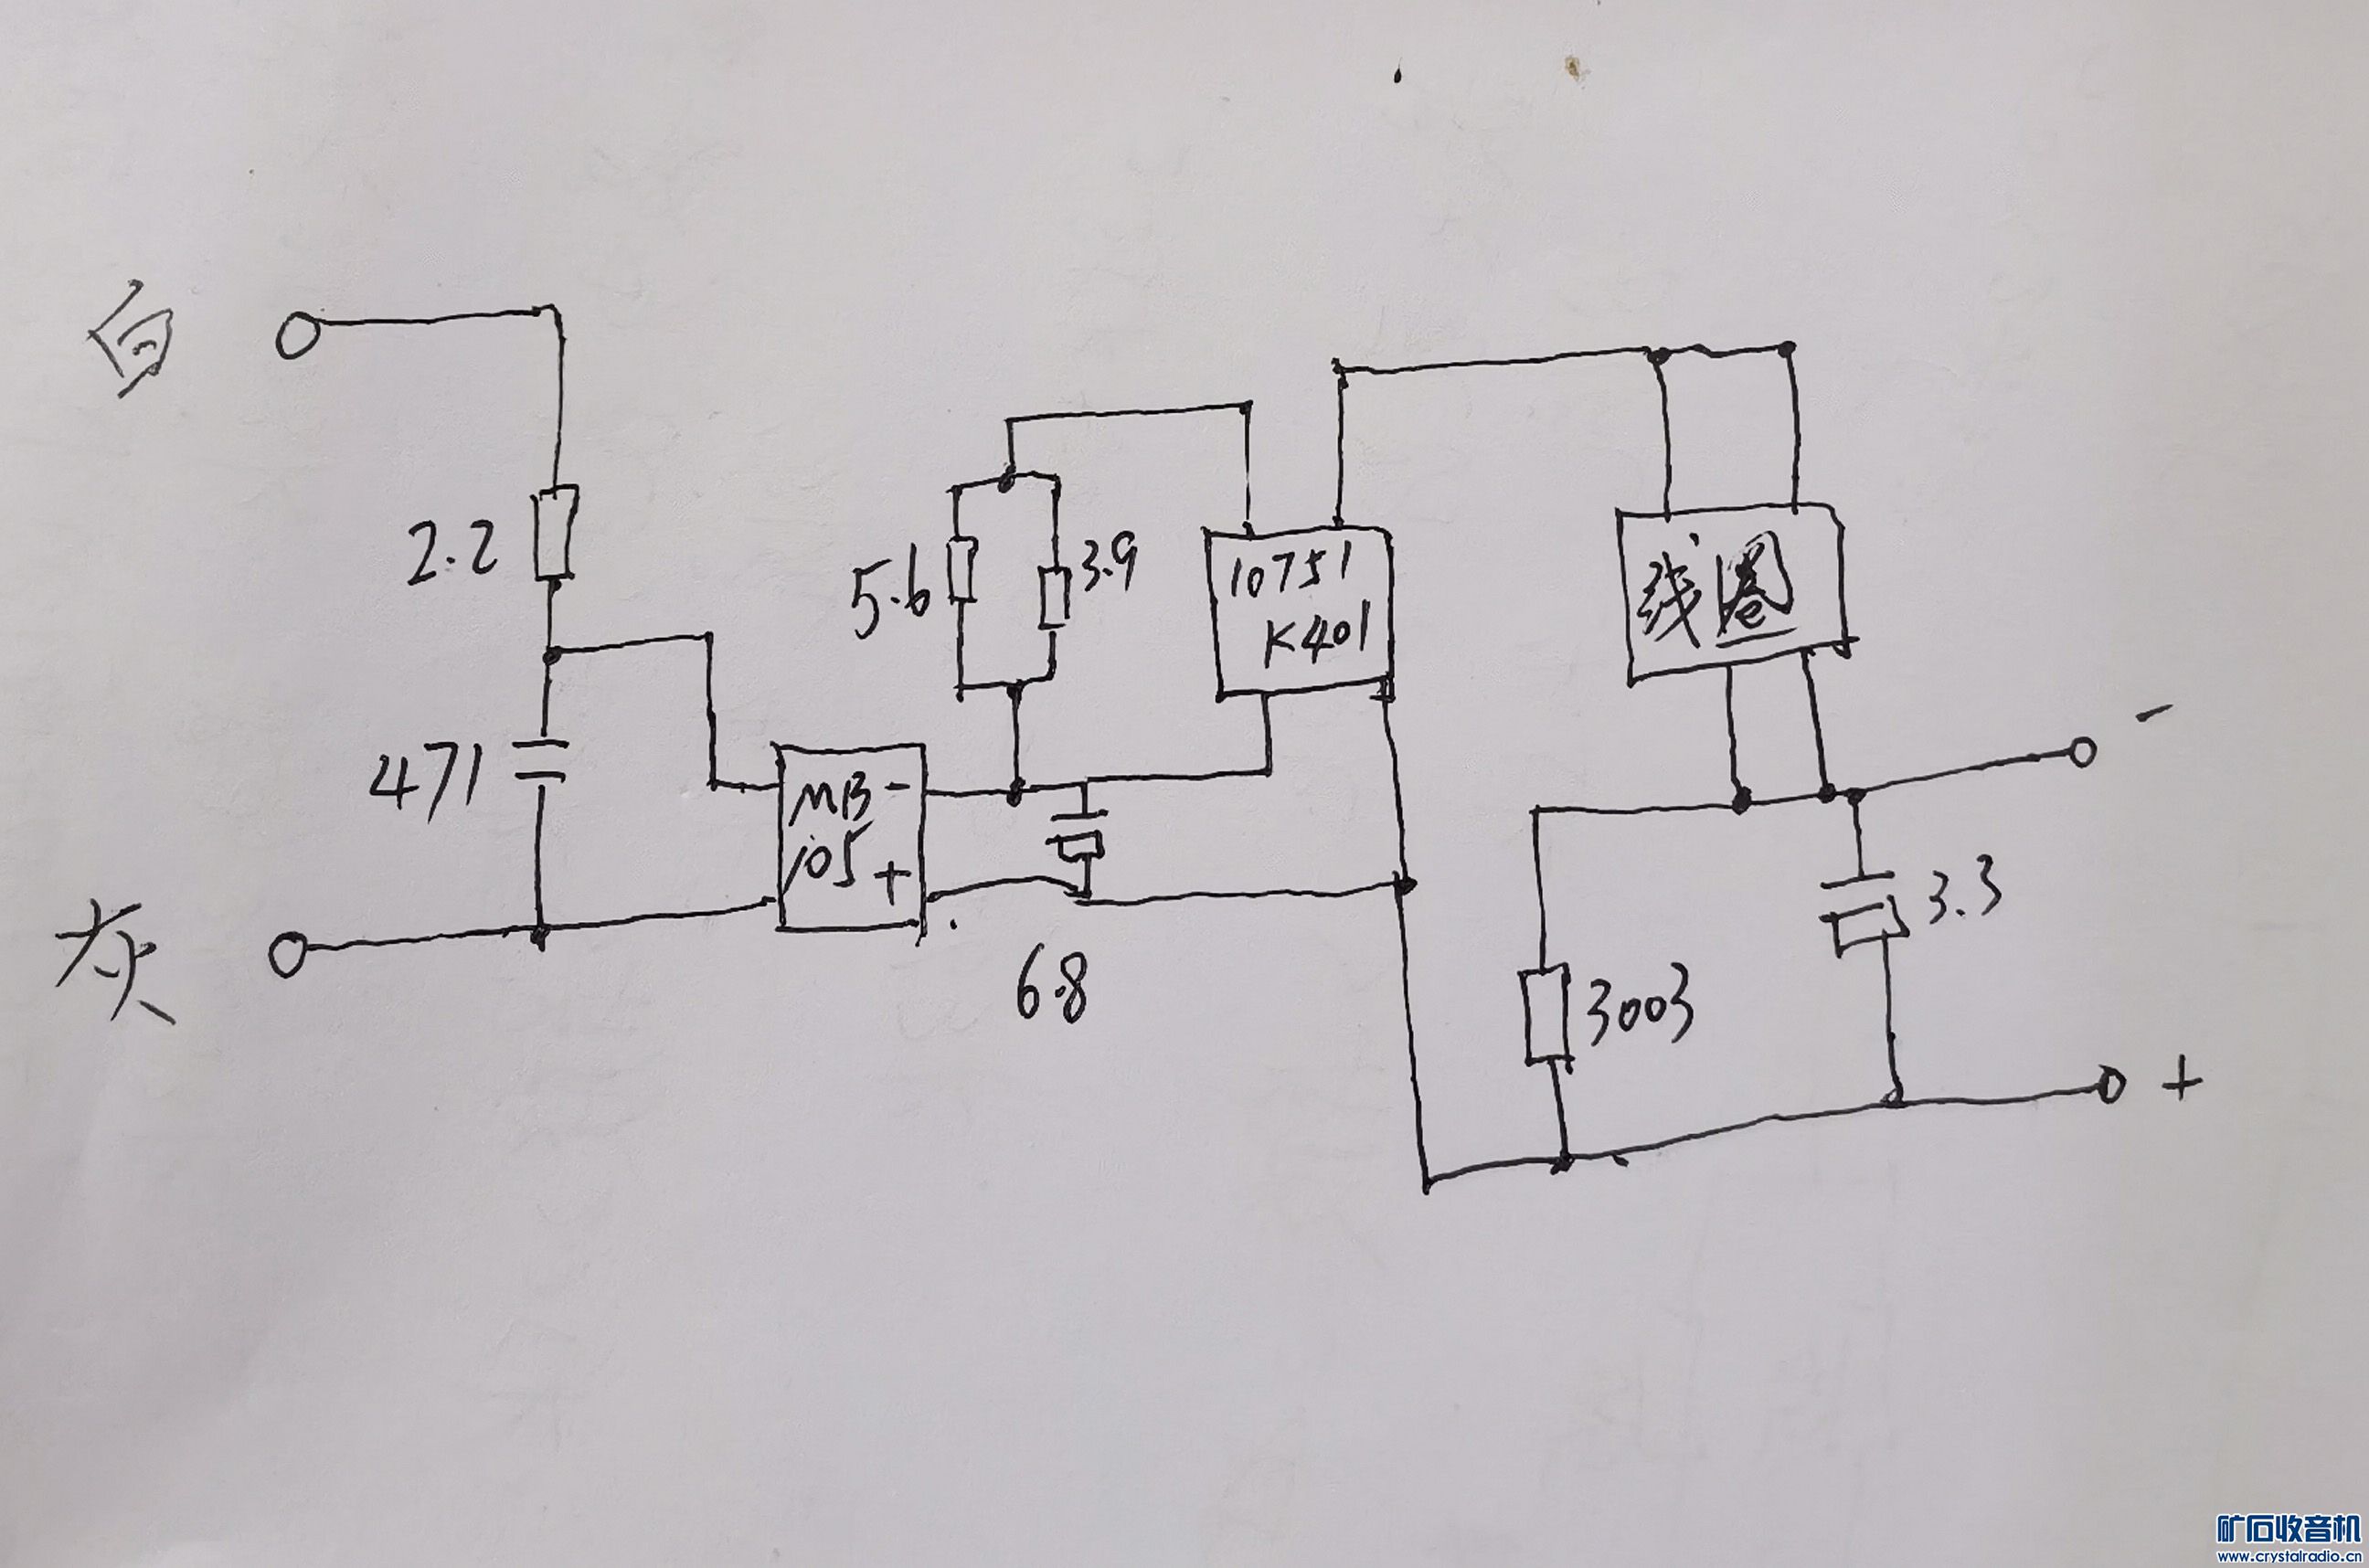 白
2.2
471
灰
MB -
105 +
5.6
3.9
6.8
10751
K401
线圈
-
3003
3.3
+
矿石收音机
www.crystalradio.cn